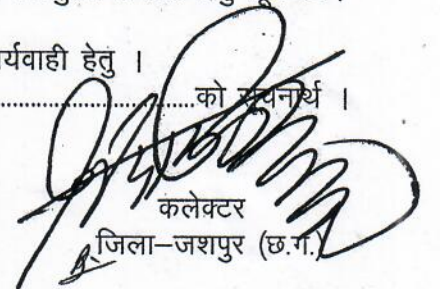 र्यवाही हेतु ।
..............................को सूचनार्थ ।
कलेक्टर
जिला–जशपुर (छ.ग.)